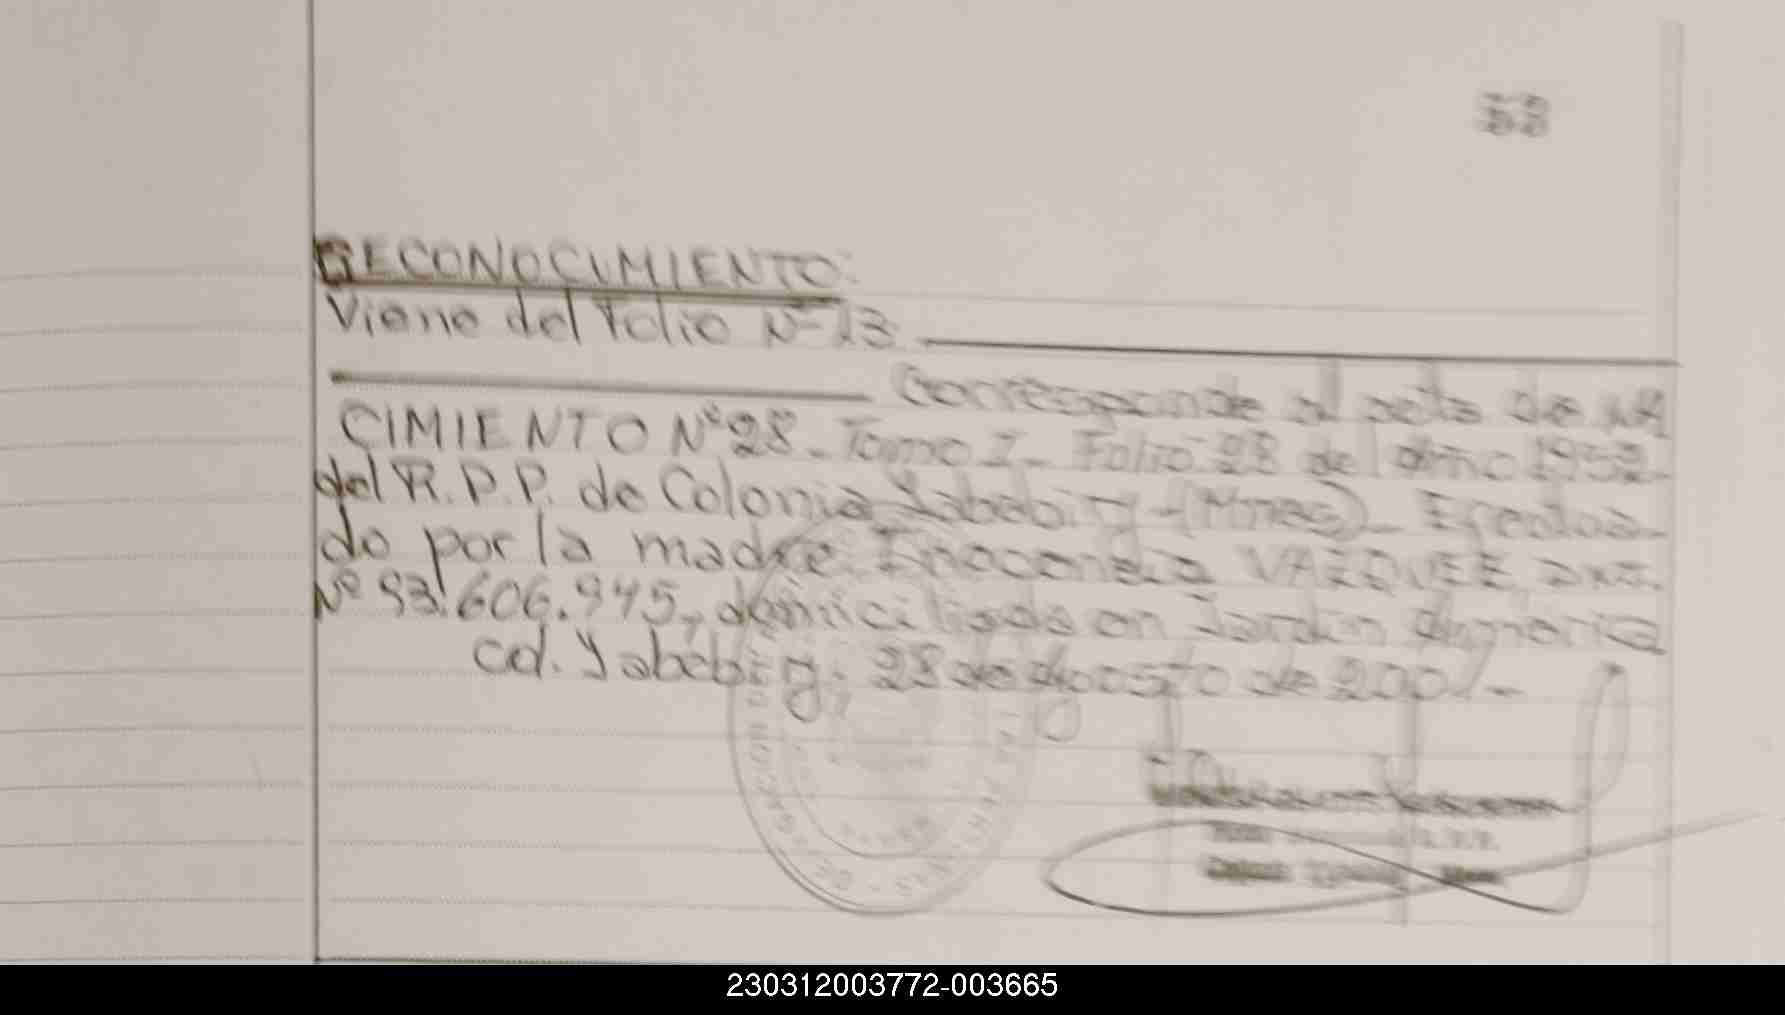 RECONOCIMIENTO:
Viene del Folio Nº 13
Corresponde al acta de NA
CIMIENTO Nº 28 - Tomo I - Folio 28 del Año 1952 -
del R.P.P. de Colonia Yabebiry - (Mnes) - Efectua-
do por la madre Inocencia VAZQUEZ, DNI.
Nº 93.606.945, domiciliada en Jardin America
Col. Yabebiry, 28 de Agosto de 2001 -
230312003772-003665